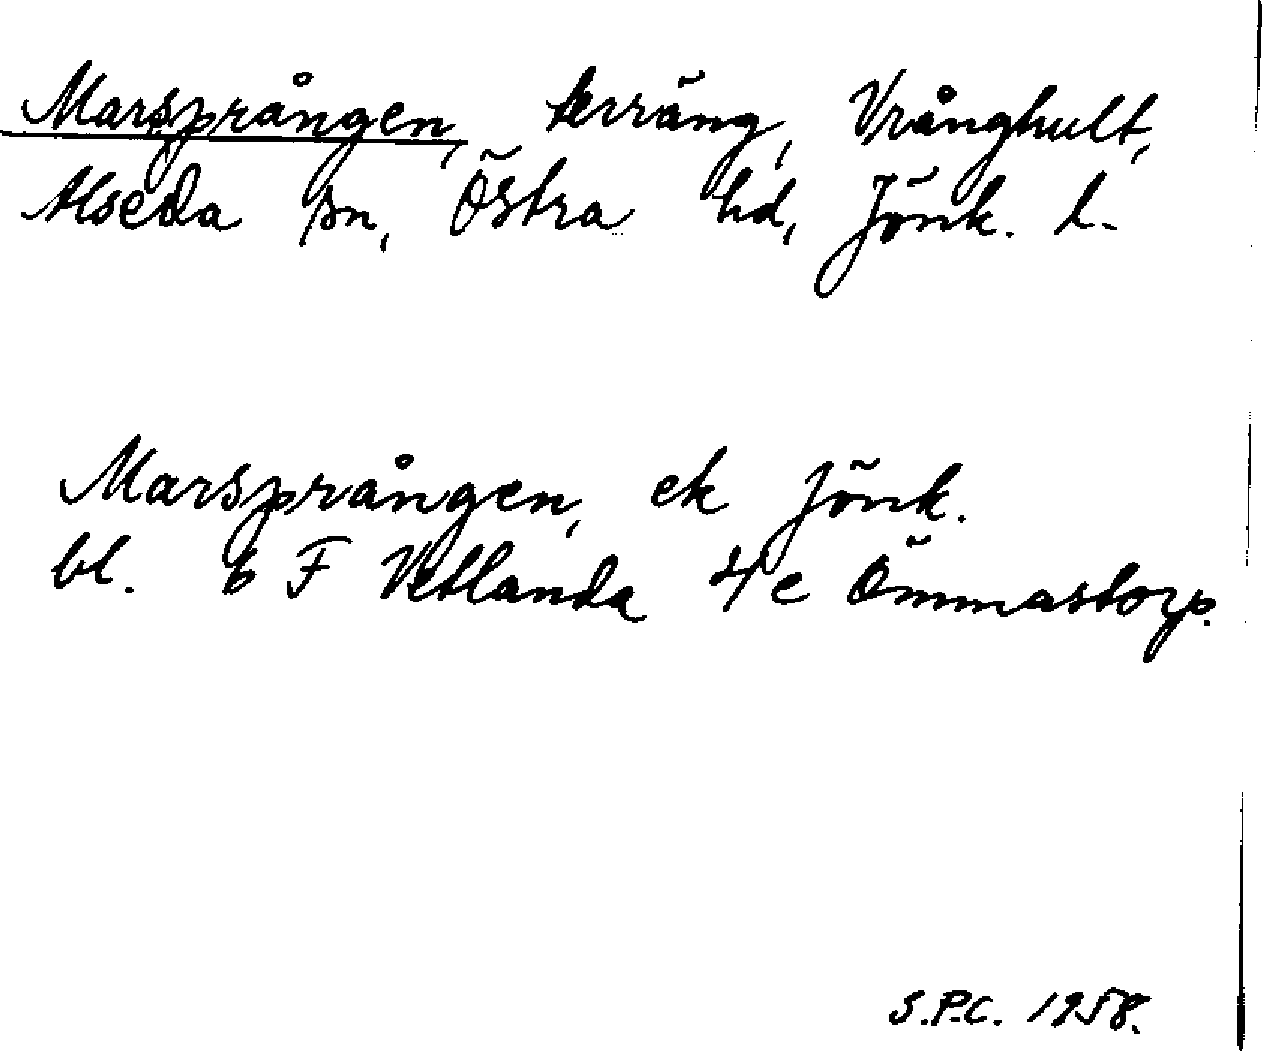 Marsprången, terräng, Vrånghult,
Alseda sn, Östra hd, Jönk. l.
Marsprången, ek Jönk.
bl. 6 F Vetlanda 4 e Ömmastorp.
S.P.C. 1958.